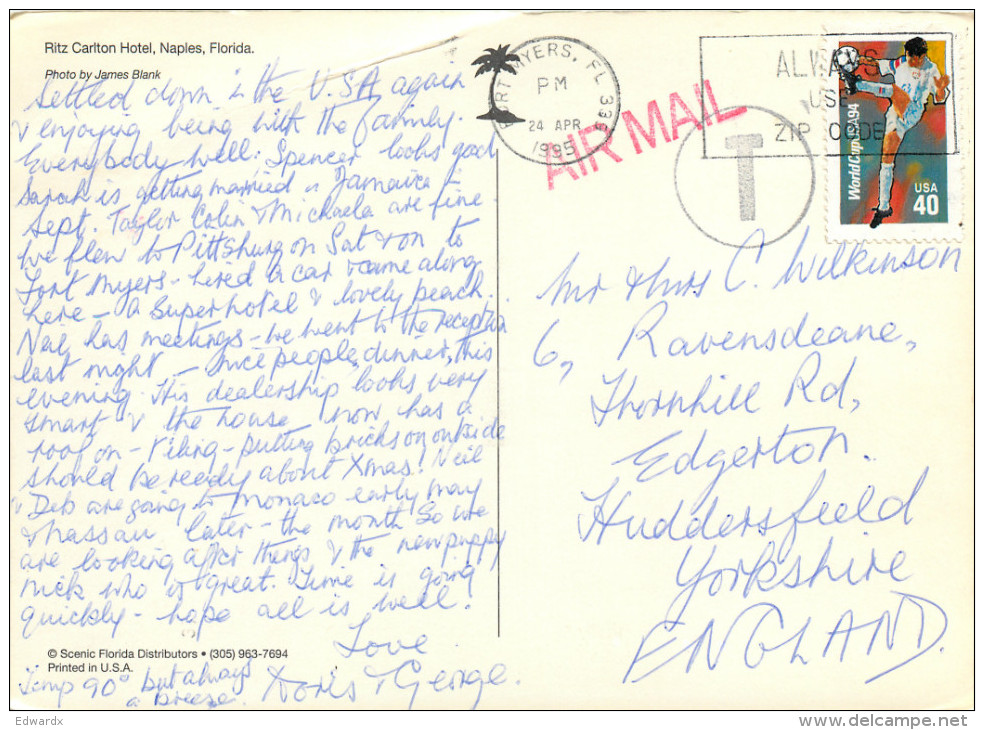 Ritz Carlton Hotel, Naples, Florida.
Photo by James Blank
Settled down in the U.S.A again
& enjoying being with the family.
Everybody well: Spencer looks good
Sarah is getting married in Jamaica in
Sept. Taylor Colin & Michaela are fine
We flew to Pittsburg on Sat & on to
Fort Myers - hired a car & came along
here - a super hotel & lovely beach.
Neil has meetings - we went to the reception
last night - nice people, dinner, this
evening. His dealership looks very
smart & the house now has a
roof on - tiling - putting bricks on outside
should be ready about Xmas! Neil
& Deb are going to Monaco early May
& Nassau later - the month so we
are looking after things & the new puppy
Nick who is great. Time is going
quickly - hope all is well.
Love
Doris & George.
Temp 90° but always
a breeze.
© Scenic Florida Distributors • (305) 963-7694
Printed in U.S.A.
FORT MYERS, FL 339
PM
24 APR
1995
AIR MAIL
ALWAYS
USE
ZIP CODE
T
World Cup USA 94
USA
40
Mr & Mrs C. Wilkinson
6, Ravensdeane,
Thornhill Rd,
Edgerton.
Huddersfield
Yorkshire
ENGLAND.
Edwardx
www.delcampe.net